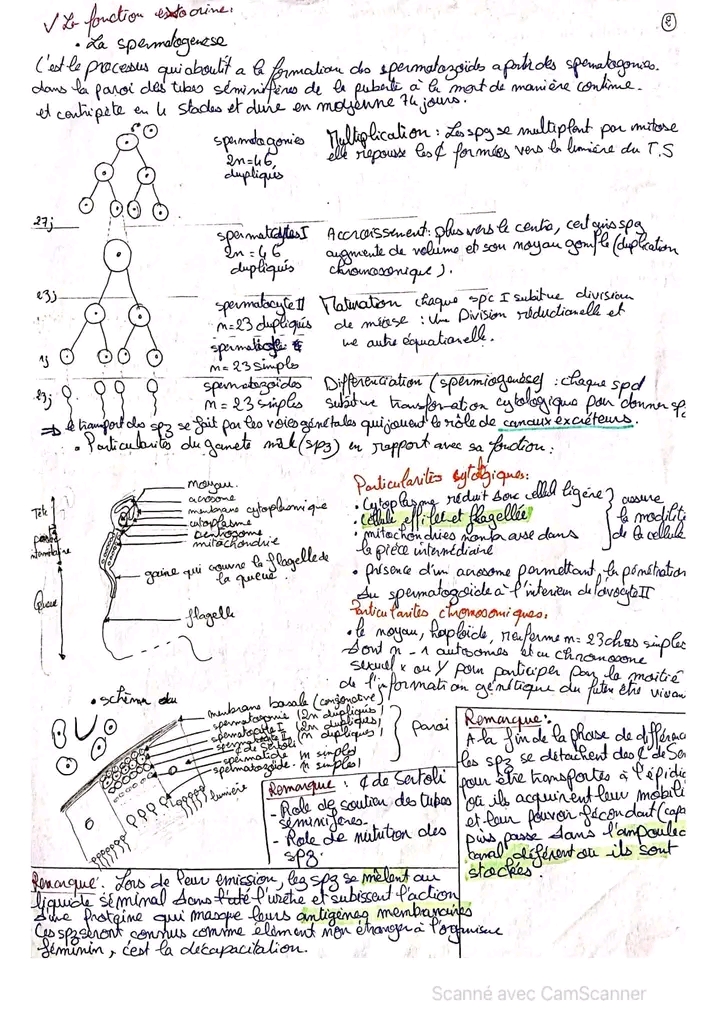 ✓ La fonction exocrine.
②
• La spermatogenèse
C'est le processus qui aboutit a la formation des spermatozoïds a partir des spermatogonies.
dans la paroi des tubes séminifères de la puberté à la mort de manière continue.
et en 4 stades et dure en moyenne 74 jours.
spermatogonies
2n=46
dupliqués
Multiplication : Les spg se multiplent par mitose
elle repousse les ¢ formées vers la lumière du T.S
27j
spermatocytes I
2n = 46
dupliqués
Accroissement: plus vers le centre, certains spg
augmente de volume et son noyau gonfle (duplication
chromosomique).
23j
spermatocyte II
n=23 dupliqués
spermatide
n=23 simples
Maturation chaque spc I subit une division
de méiose : Une Division réductionelle et
une autre équationelle.
1j
23j
spermatozoides
n=23 simples
Différenciation (spermiogenèse) : chaque spd
subit une transformation cytologique pour donner spz
⇒ le transport des spz se fait par les voies génitales qui jouent le rôle de canaux excréteurs.
• Particularités du gamete mâle (spz) en rapport avec sa fonction :
noyau.
acrosome
membrane cytoplasmique
cytoplasme
centrosome
mitochondrie
gaine qui couvre la flagelle de
la queue.
flagelle
Tete
piece
intermédiaire
Queue
Particularités cytologiques:
• Cytoplasme réduit donc cellul légère
• cellule effilée et flagellée
• mitochondries nombreuse dans
la pièce intermédiaire
assure
la mobilité
de la cellule
• présence d'un acrosome permettant la pénétration
du spermatozoïde à l'interieur de l'ovocyte II
Particularités chromosomiques:
• le noyau, haploïde, renferme n=23 chrs simples
dont n-1 autosomes et un chromosome
sexuel x ou y pour participer pour la moitié
de l'information génétique du futur être vivan
• schéma du
membrane basale (conjonctive)
spermatogonie (2n dupliqués)
spermatocyte I (2n dupliqués)
spermatocyte II (n dupliqués)
¢ de Sertoli
spermatide n simples
spermatozoïde. n simples
Paroi
lumière
Remarque : ¢ de Sertoli
- Role de soutien des tubes
séminifères.
- Role de nutrition des
spz.
Remarque:
A la fin de la phase de différenc
les spz se détachent des ¢ de Ser
pour être transportés à l'épidid
où ils acquirent leur mobili
et leur pouvoir fécondant (capa
puis passe dans l'ampoule
canal déférent ou ils sont
stockés.
Remarque: Lors de leur émission, les spz se mêlent au
liquide séminal dans l'urèthe et subissent l'action
d'une protéine qui masque leurs antigènes membranaires
Ces spz seront connus comme element non étranger à l'organisme
féminin, c'est la décapacitation.
Scanné avec CamScanner